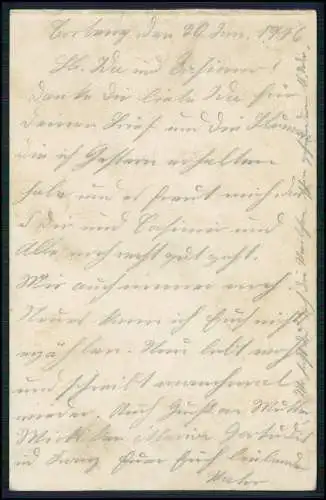 den 20 Jan. 1916
Lb. Ida und Casimir!
Danke dir liebe Ida für
Deinen Brief und die Blumen
die ich gestern erhalten
habe und es freut mich das
s Dir und Casimir und
Alle noch recht gut geht.
Mir auch immer noch.
Neues kann ich Euch nicht
erzählen. Nun lebt wohl
und schreibt manchmal
wieder. Auch Gruß an Mutter
Maria Gertrud
und Franz Euer Euch liebender
Vater